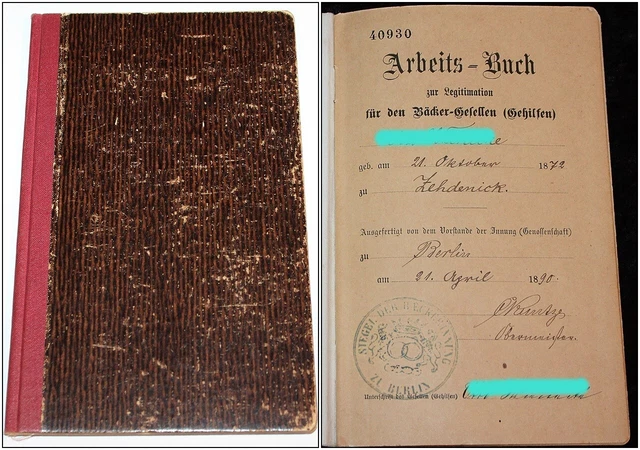 40930
Arbeits-Buch
zur Legitimation
für den Bäcker-Gesellen (Gehilfen)
geb. am 21. Oktober 1872
zu Zehdenick.
Ausgefertigt von dem Vorstande der Innung (Genossenschaft)
zu Berlin
am 21. April 1890.
Obermeister.
SIEGEL DER BÄCKER INNUNG
ZU BERLIN
Unterschrift des Gesellen (Gehilfen)